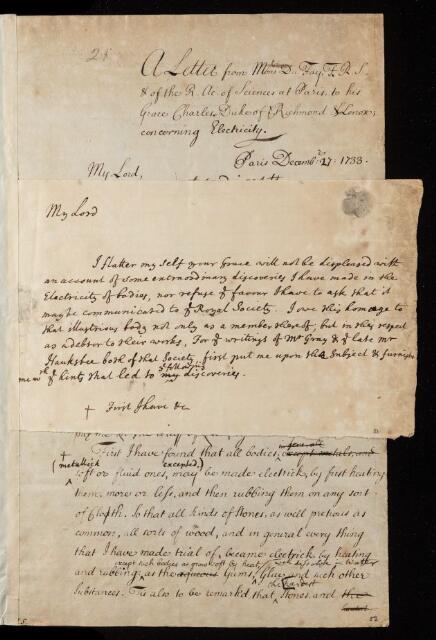 28
A Letter from Mons. Du Fay, F. R. S.
& of the R. Ac. of Sciences at Paris, to his
Grace Charles Duke of Richmond & Lenox,
concerning Electricity.
Paris Decemb. 27. 1733.
My Lord,
My Lord
I flatter my self your Grace will not be displeased with
an account of some extraordinary discoveries I have made in the
Electricity of bodies, nor refuse ye favour I have to ask that it
may be communicated to ye Royal Society. I owe this homage to
that illustrious body not only as a member thereof, but in this respect
as a debtor to their works. For ye writings of Mr Gray & ye late mr
Hauksbee both of that Society, first put me upon the Subject & furnish
me wth ye hints that led to my discoveries.
† First I have &c
† First I have found that all bodies, except metals, and
(metallick excepted,)
soft or fluid ones, may be made electrick, by first heating
them, more or less, and then rubbing them on any sort
of Cloth. So that all kinds of stones, as well pretious as
common, all sorts of wood, and in general every thing
that I have made trial of, became electrick by heating
except such bodies as grow soft by heat, dissolve in water
and rubbing, as the aqueous Gums, Glue, and such other
the hardest
Substances. Tis also to be remarked that Stones, and the
52